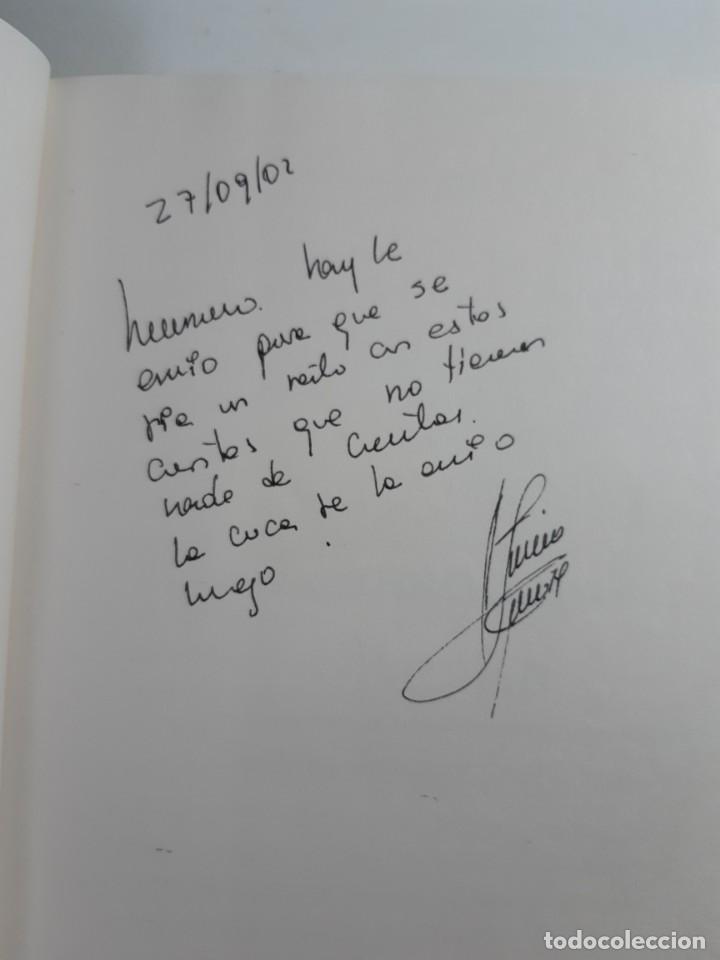 27/09/02
hay le
envio para que se
ria un ratito con estos
cuentos que no tienen
nada de cuentos.
la cuca se la envio
luego.
todocoleccion